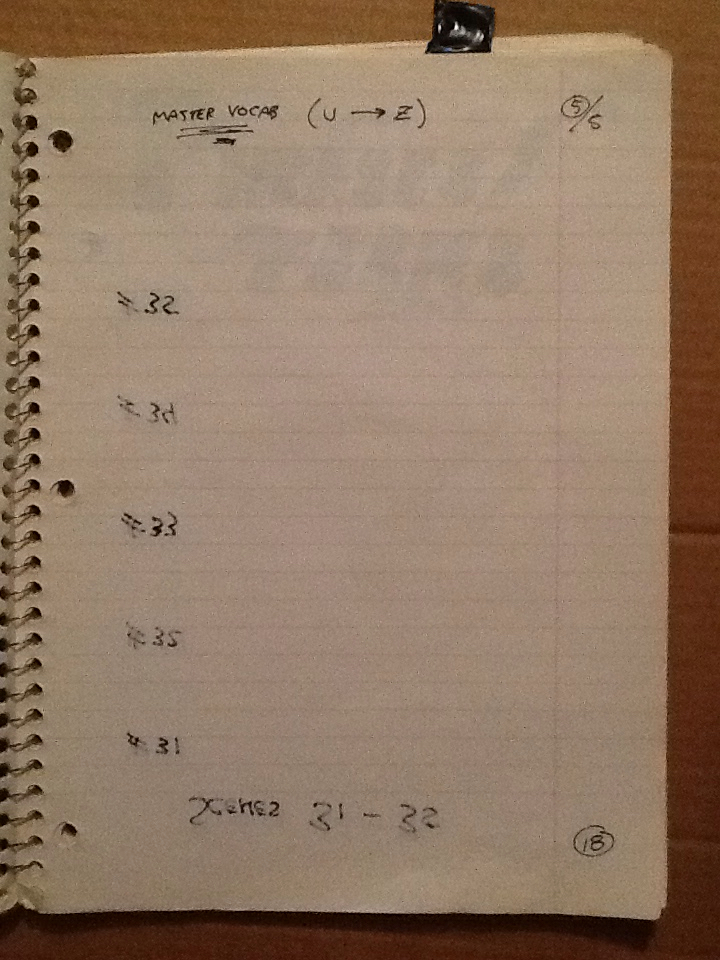 MASTER VOCAB (U → Z) 5/5
#35
#34
#33
#32
#31
SCENES 31 - 35
18